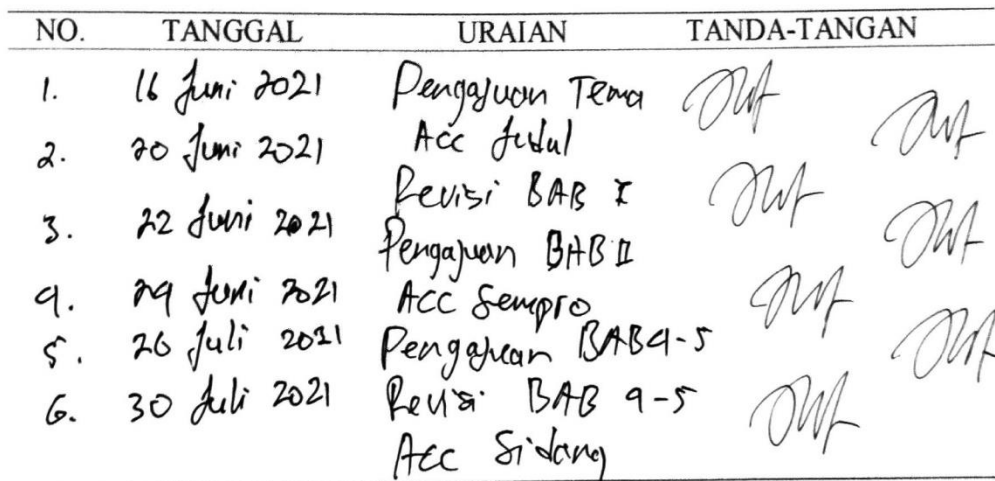 NO. TANGGAL URAIAN TANDA-TANGAN
1. 16 Juni 2021 Pengajuan Tema
2. 20 Juni 2021 Acc Judul
Revisi BAB I
3. 22 Juni 2021
Pengajuan BAB II
4. 29 Juni 2021 ACC Sempro
5. 26 Juli 2021 Pengajuan BAB 4-5
6. 30 Juli 2021 Revisi BAB 4-5
Acc Sidang